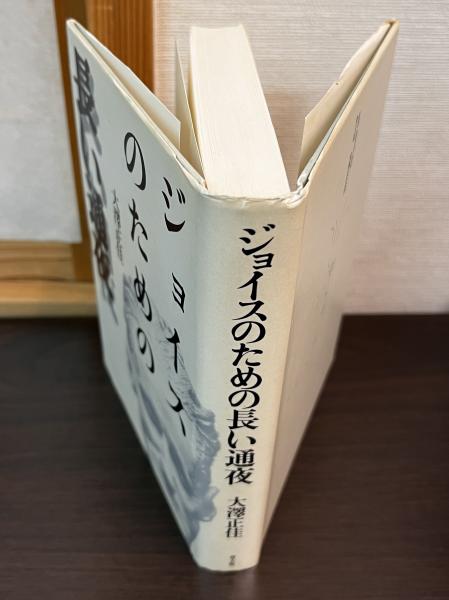 ジョイス
のための
長い通夜
大澤正佳
ジョイスのための長い通夜
大澤正佳
青土社